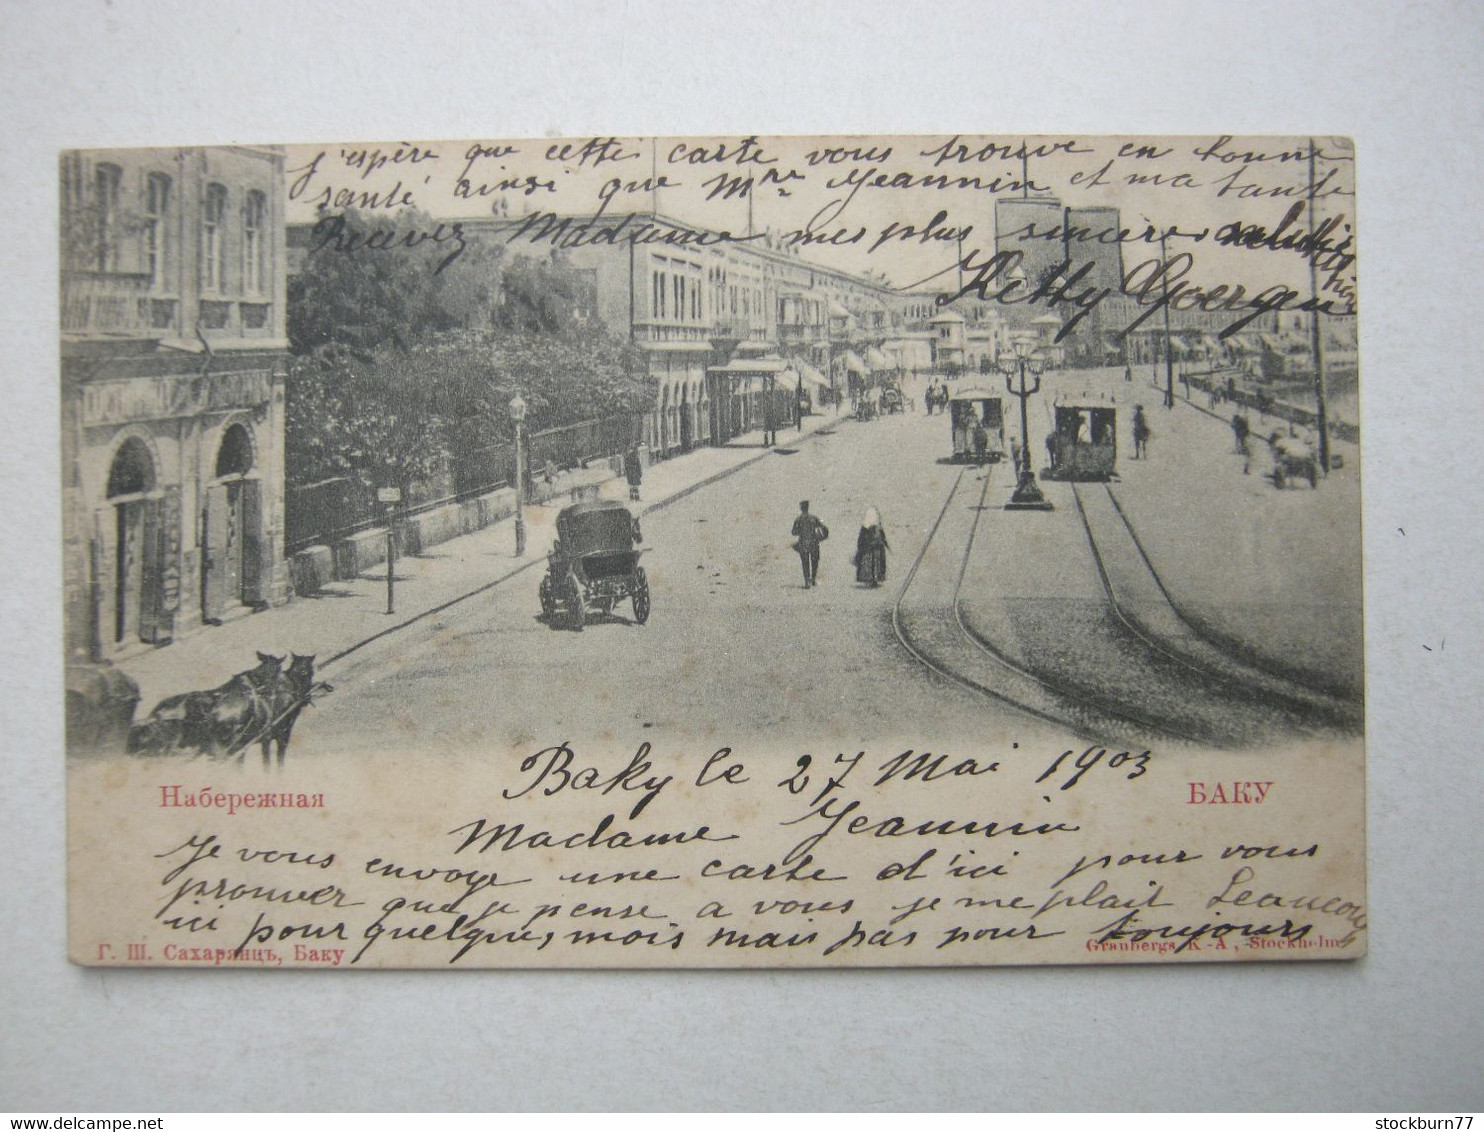 j'espère que cette carte vous trouve en bonne
santé ainsi que Mme Jeannin et ma tante
Recevez Madame mes plus sincères
Ketty Goergen
Baky le 27 Mai 1903
Набережная
БАКУ
Madame Jeannin
Je vous envoye une carte d'ici pour vous
prouver que je pense a vous je me plait beaucoup
ici pour quelques mois mais pas pour toujours
Г. Ш. Сахарянцъ, Баку
Granbergs K-A, Stockholm
stockburn77